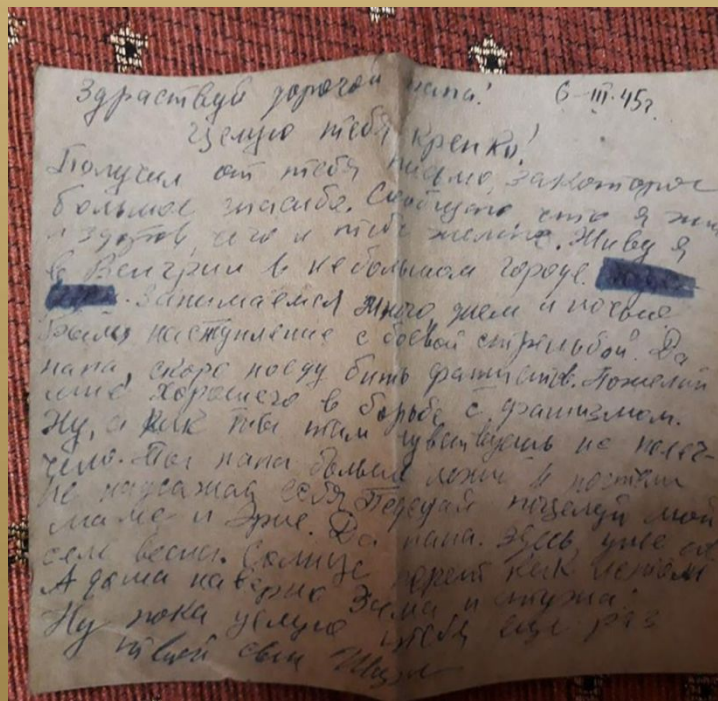 Здраствуй дорогой папа! 6-III-45г.
Целую тебя крепко!
Получил от тебя письмо, закоторое
большое спасибо. Сообщаю что я жив
и здоров чего и тебе желаю. Живу я
в Венгрии в небольшом городе.
Занимаемся много днем и ночью.
наступление с боевой стрельбой. Да
папа, скоро поеду бить фашистов. Пожелай
мне хорошего в борьбе с фашизмом.
Ну, а как ты там чувствуешь не
Ты папа лежи в постели
не себя. Передай поцелуй мой
маме и Да папа. Здесь уже
сем весна. Солнце как
А дома наверно зима и стужа.
Ну пока целую тебя еще раз
твой сын